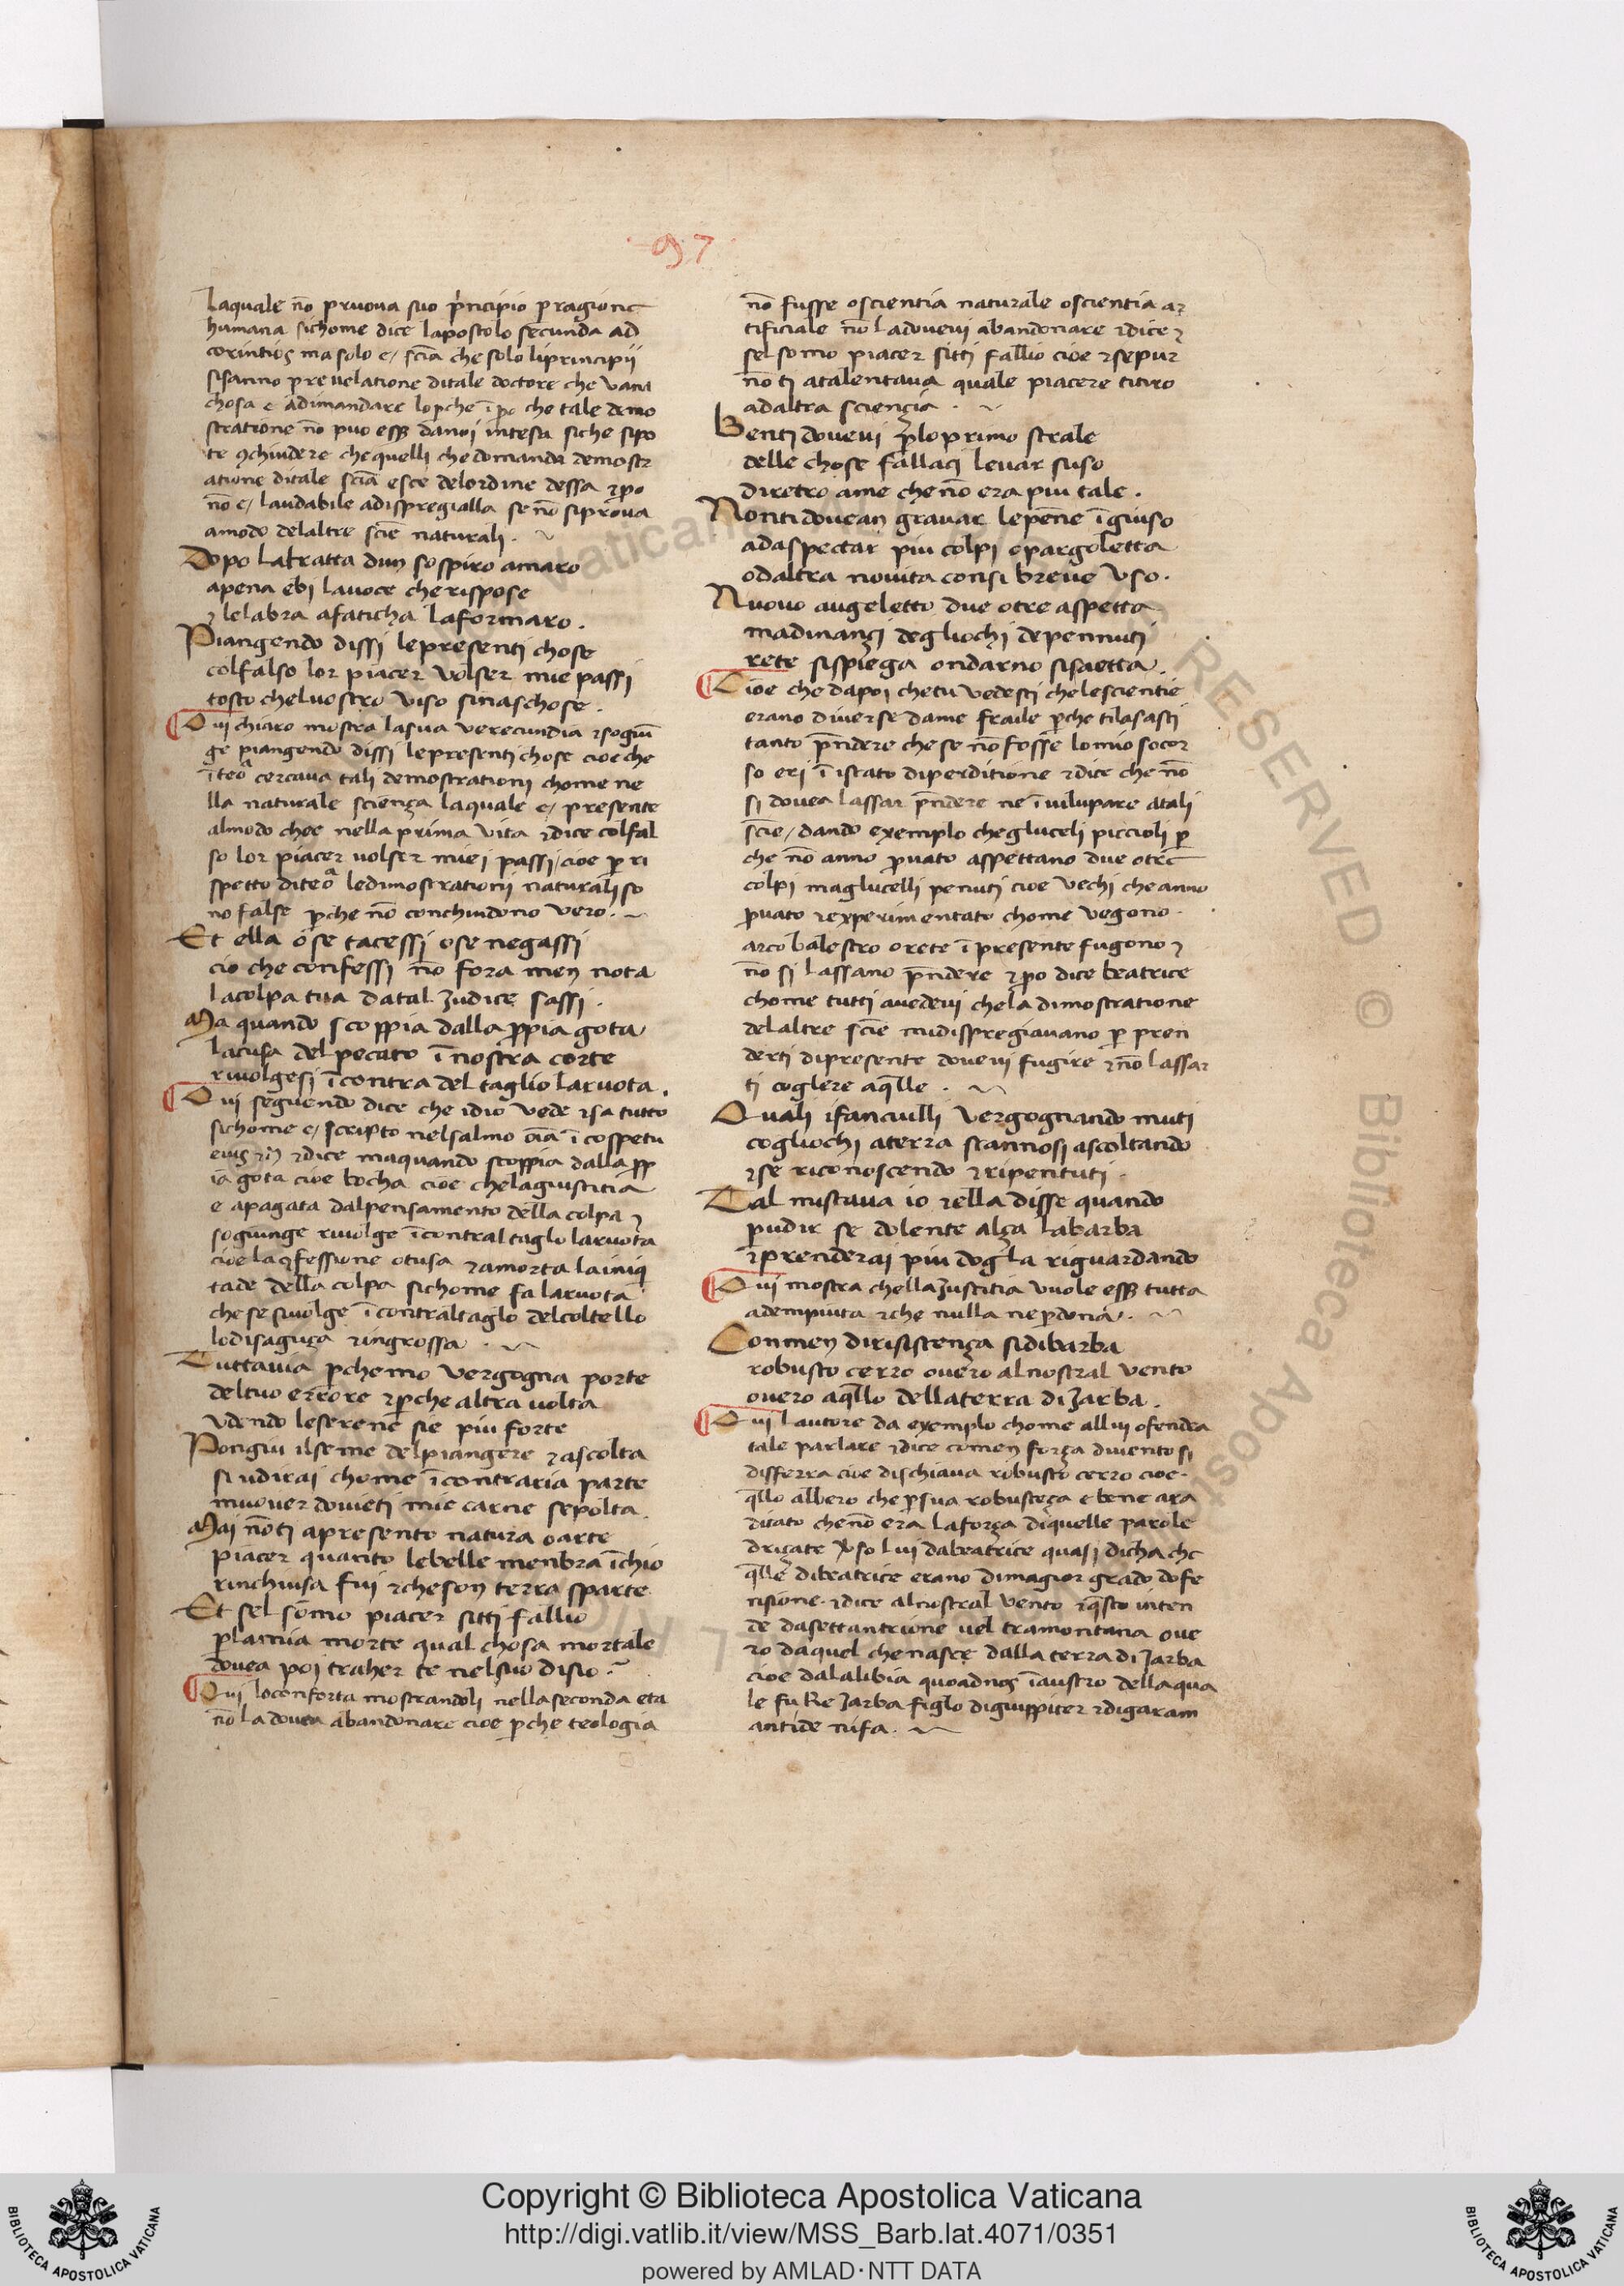 97
laquale nō pruoua suo pͥncipio p ragione
humana sichome dice lapostolo secunda ad
corintios ma solo e/ scīa che solo li principii
sisanno p reuelatione ditale doctore che vana
chosa e adimandare lo pche ī po che tale demo
stratione nō puo esse danoi intesa siche sipo
te ꝯchiudere che quelli che domanda demostr
atione ditale scīa esce delordine dessa ⁊ po
nō e/ laudabile adispregialla se nō siproua
amodo delaltre scīe naturali .
Dopo latratta dun sospiro amaro
apena ebi lauoce che rispose
⁊ lelabra afaticha laformaro .
Piangendo dissi lepresenti chose
colfalso lor piacer volser mie passi
tosto cheluostro viso sinaschose .
Qui chiaro mostra lasua verecundia ⁊ sogiū
ge piangendo dissi lepresenti chose cioe che
ī teoᵃ cercaua tali demostrationi chome ne
lla naturale scienza laquale e/ presente
almodo chee nella prima vita ⁊ dice colfal
so lor piacer uolser miei passi/ cioe p ri
spetto diteoᵃ ledimostrationi naturali so
no false pche nō conchiudono vero .
Et ella o se tacessi o se negassi
cio che confessi nō fora men nota
lacolpa tua datal Judice sassi .
Ma quando scoppia dalla ppia gota
lacusa del pecato ī nostra corte
riuolgesi īcontra del taglio laruota .
Qui seguendo dice che idio vede ⁊ sa tutto
sichome e/ scripto nelsalmo oīa ī cospetu
eius ⁊ dice maquando scoppia dalla pp
ia gota cioe bocha cioe chelagiustitia
e apagata dalpensamento della colpa ⁊
sogiunge riuolge īcontral taglo laruota
cioe la ꝯfessione otusa ⁊ amorta la iniq
tade della colpa sichome fa laruota
che se suolge ī contraltaglo delcoltello
lodisaguza ⁊ ingrossa .
Tuttauia pchemo vergogna porte
deltuo errore ⁊ pche altra uolta
vdendo leserene sie piu forte
Pongiu ilseme delpiangere ⁊ ascolta
si udirai chome īcontraria parte
muouer douieti mie carne sepolta .
Mai nōti apresento natura o arte
piacer quanto lebelle menbra īchio
rinchiusa fui ⁊ cheson terra sparte
Et sel sōmo piacer sitti fallio
plamia morte qual chosa mortale
douea poi traher te nelsuo disio .
Qui loconforta mostrandoli nella seconda eta
nō la douea abandonare cioe pche teologia
nō fusse o scientia naturale o scientia ar
tificiale nō ladoueui abandonare ⁊ dice ⁊
sel somo piacer sitti fallio cioe ⁊ sepur
nō ti atalentaua quale piacere titiro
adaltra scienzia .
Benti doueui plo primo strale
delle chose fallaci leuar suso
diretro ame che nō era piu tale .
Nonti douean grauar lepēne īgiuso
adaspectar piu colpi o pargoletta
odaltra nouita consi breue vso .
Nuouo augeletto due otre aspetta
madinanzi degliochi depennuti
rete sispiega ondarno sisaetta .
Cioe che dapoi chetu vedesti chelescientie
erano diuerse dame fraile pche tilasasti
tanto pndere che se nō fosse lo mio socor
so eri ī istato diperditione ⁊ dice che nō
si douea lassar pndere ne īuilupare atali
scīe/ dando exemplo chegluceli piccioli p
che nō anno puato aspettano due otre
colpi maglucelli penuti cioe vechi che anno
puato ⁊ experimentato chome vegono
arco balestro o rete ī presente fugono ⁊
nō si lassano pndere ⁊ po dice beatrice
chome tutti auedeui chela dimostratione
delaltre scīe midispregiauano p pren
derti dipresente doueui fugire ⁊ nō lassar
ti coglere aqlle .
Quali ifanciulli vergognando muti
cogliochi aterra stannosi ascoltando
⁊ se riconoscendo ⁊ ripentuti .
Tal mistaua io ⁊ ella disse quando
p udir se dolente alza labarba
⁊ prenderai piu dogla riguardando
Qui mostra chella Justitia vuole esse tutta
adempiuta ⁊ che nulla ne pdona .
Conmen diresistenza sidibarba
robusto cerro ouero alnostral vento
ouero aqllo dellaterra di Jarba .
Qui lautore da exemplo chome allui ofendea
tale parlare ⁊ dice comen forza diuento si
differra cioe dischiaua robusto cerro cioe
qllo albero che psua robusteza e bene ara
dicato che nō era laforza diquelle parole
drizate vso lui dabeatrice quasi dicha che
qlle dibeatrice erano dimagior grado dofe
nsione . ⁊ dice alnostral vento ⁊ qsto inten
de dasettantrione uel tramontana oue
ro daquel che nasce dalla terra di Jarba
cioe dalalibia quoadnos īaustro dellaqua
le fu Re Jarba figlo digiuppiter ⁊ digaram
antide nifa .
Copyright © Biblioteca Apostolica Vaticana
http://digi.vatlib.it/view/MSS_Barb.lat.4071/0351
powered by AMLAD·NTT DATA